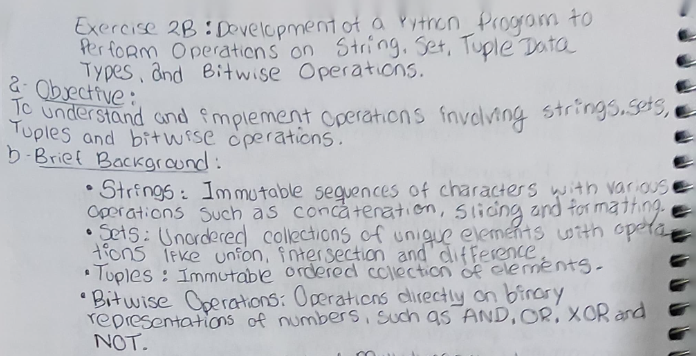 Exercise 2B: Development of a Python Program to
Perform Operations on String, Set, Tuple Data
Types, and Bitwise Operations.
a- Objective:
To understand and implement operations involving strings, sets,
Tuples and bitwise operations.
b- Brief Background:
• Strings: Immutable sequences of characters with various
operations such as concatenation, slicing and formatting.
• Sets: Unordered collections of unique elements with opera
tions like union, intersection and difference.
• Tuples: Immutable ordered collection of elements.
• Bitwise Operations: Operations directly on binary
representations of numbers, such as AND, OR, XOR and
NOT.